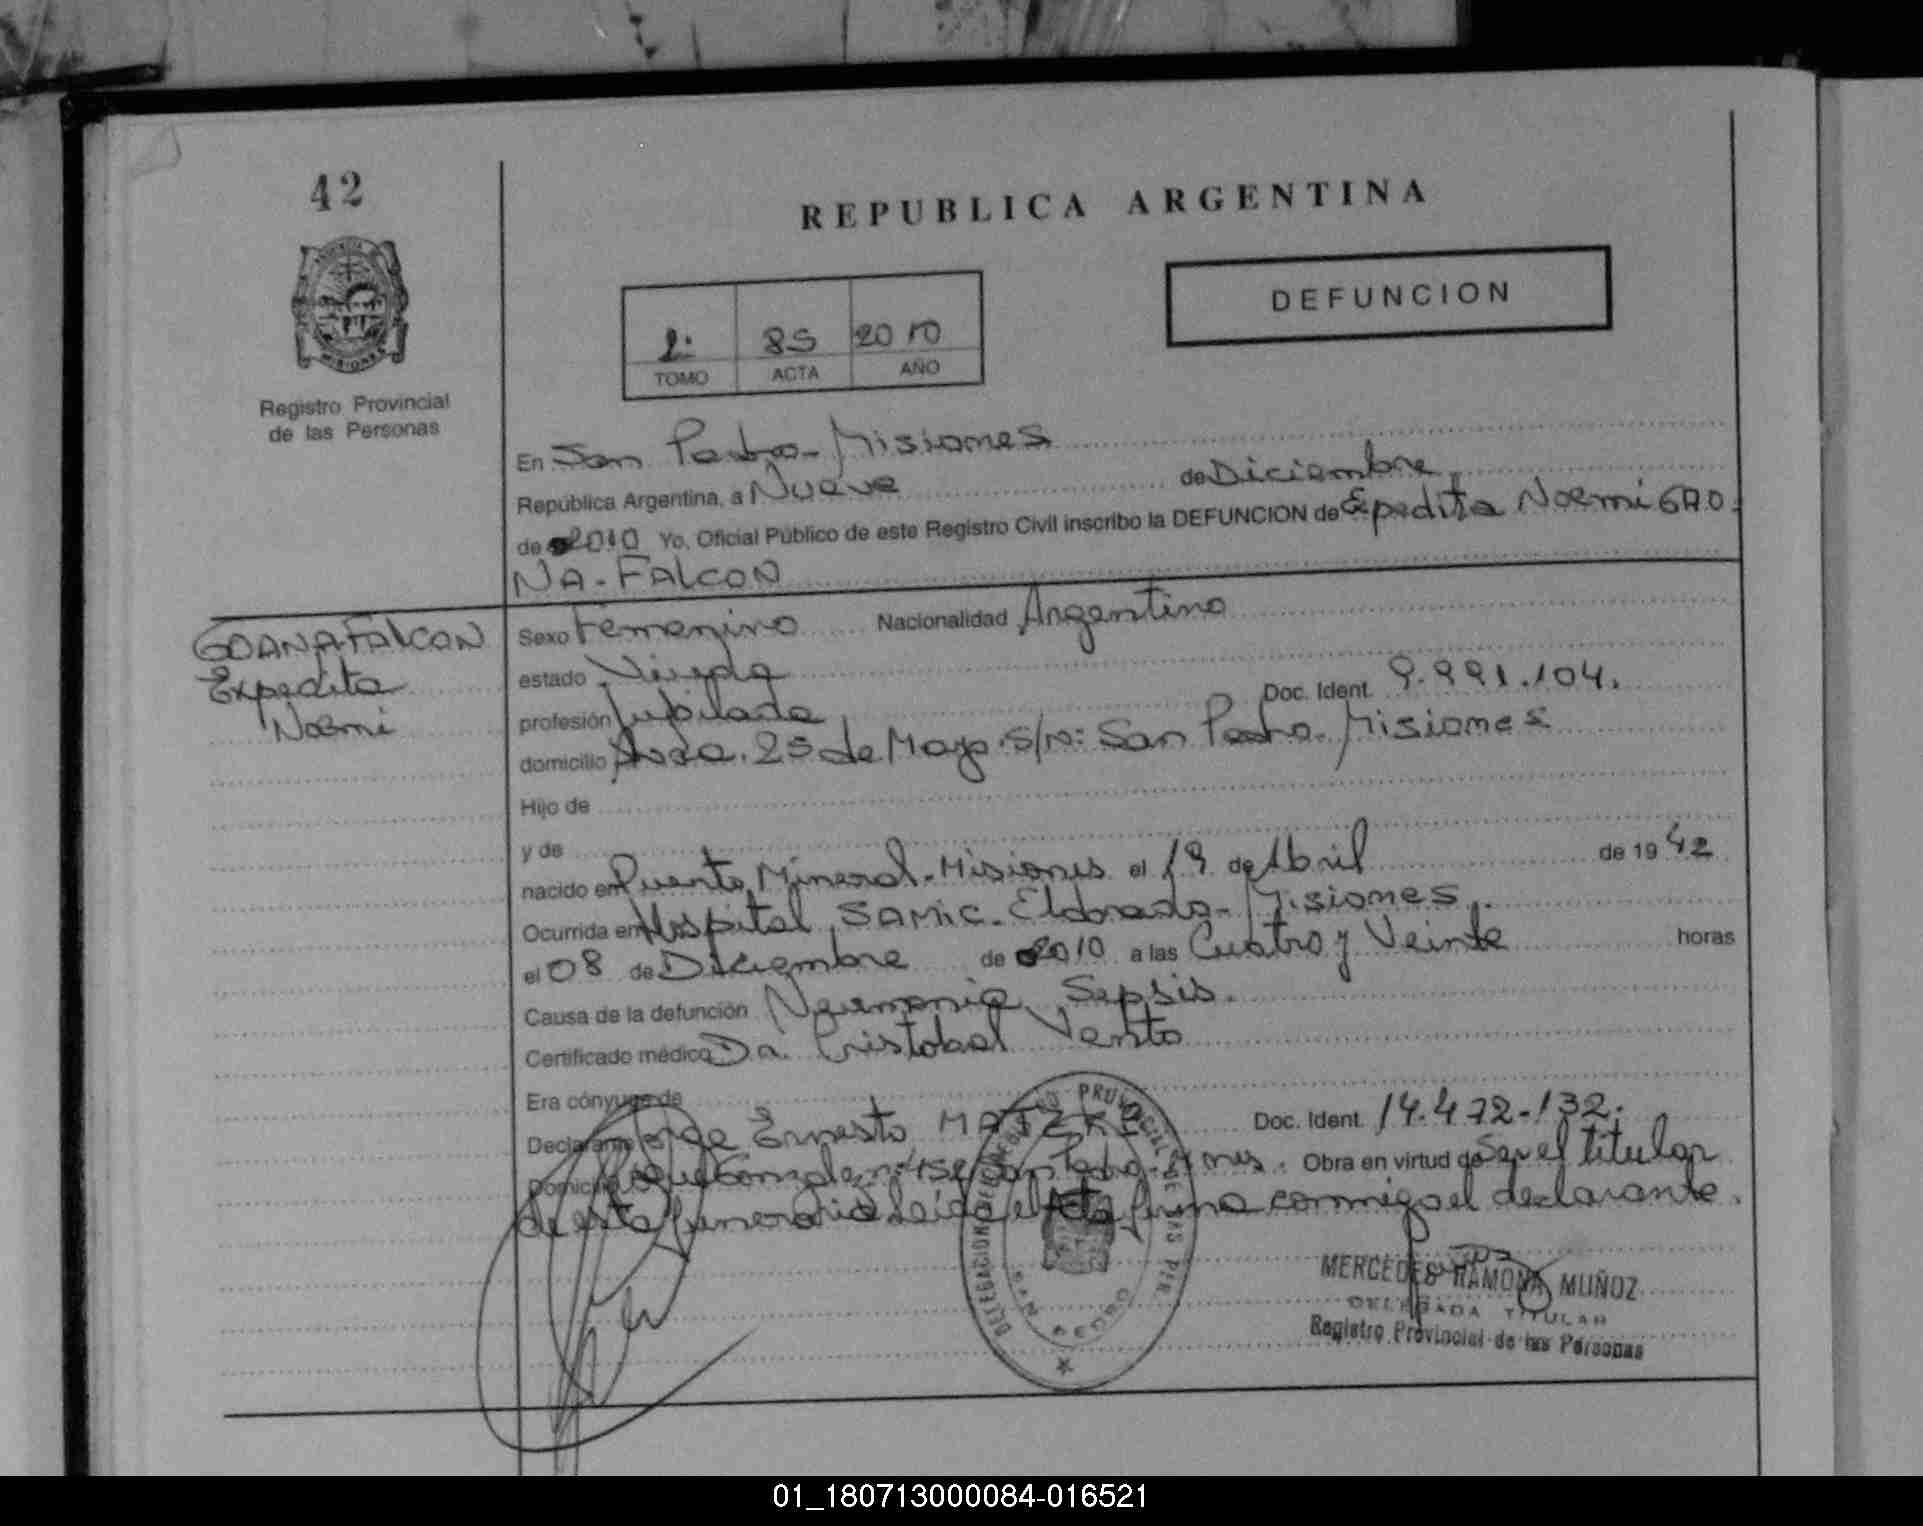 42
REPUBLICA ARGENTINA
DEFUNCION
1º 85 2010
TOMO ACTA AÑO
Registro Provincial
de las Personas
En San Pedro - Misiones
República Argentina, a Nueve de Diciembre
de 2010 Yo, Oficial Público de este Registro Civil inscribo la DEFUNCION de Expedita Noemi GAO
NA - FALCON
GOANA FALCON
Expedita
Noemi
Sexo Femenino Nacionalidad Argentina
estado Viuda
profesión Jubilada Doc. Ident. 9.991.104.
domicilio Avda. 25 de Mayo s/n: San Pedro - Misiones
Hijo de
y de
nacido en Puerto Mineral - Misiones el 19 de Abril de 1942
Ocurrida en Hospital SAMIC - Eldorado - Misiones.
el 08 de Diciembre de 2010 a las Cuatro y Veinte horas
Causa de la defunción Neumonia Sepsis.
Certificado médico Dr. Cristobal Vento
Era cónyuge de
Declarante Jorge Ernesto Doc. Ident. 14.472.132.
Domicilio San Pedro - Mnes. Obra en virtud de Ser el titular
de esta funeraria Leida el Acta firma conmigo el declarante.
DELEGACION PROVINCIAL DE LAS PER
SAN PEDRO
MERCEDES RAMONA MUÑOZ
DELEGADA TITULAR
Registro Provincial de las Personas
01_180713000084-016521